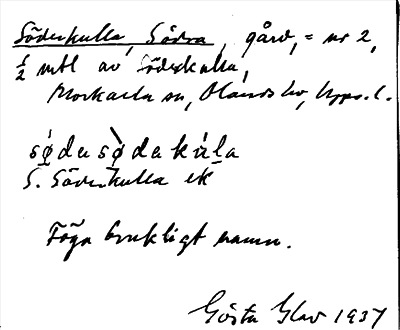 Söderkulla, Södra, gård, = nr 2,
½ mtl av Söderkulla,
Morkarla sn, Olands hd, Upps. l.
sø̀dasø̀dakùla
S. Söderkulla ek
Föga brukligt namn.
Gösta Glav 1937